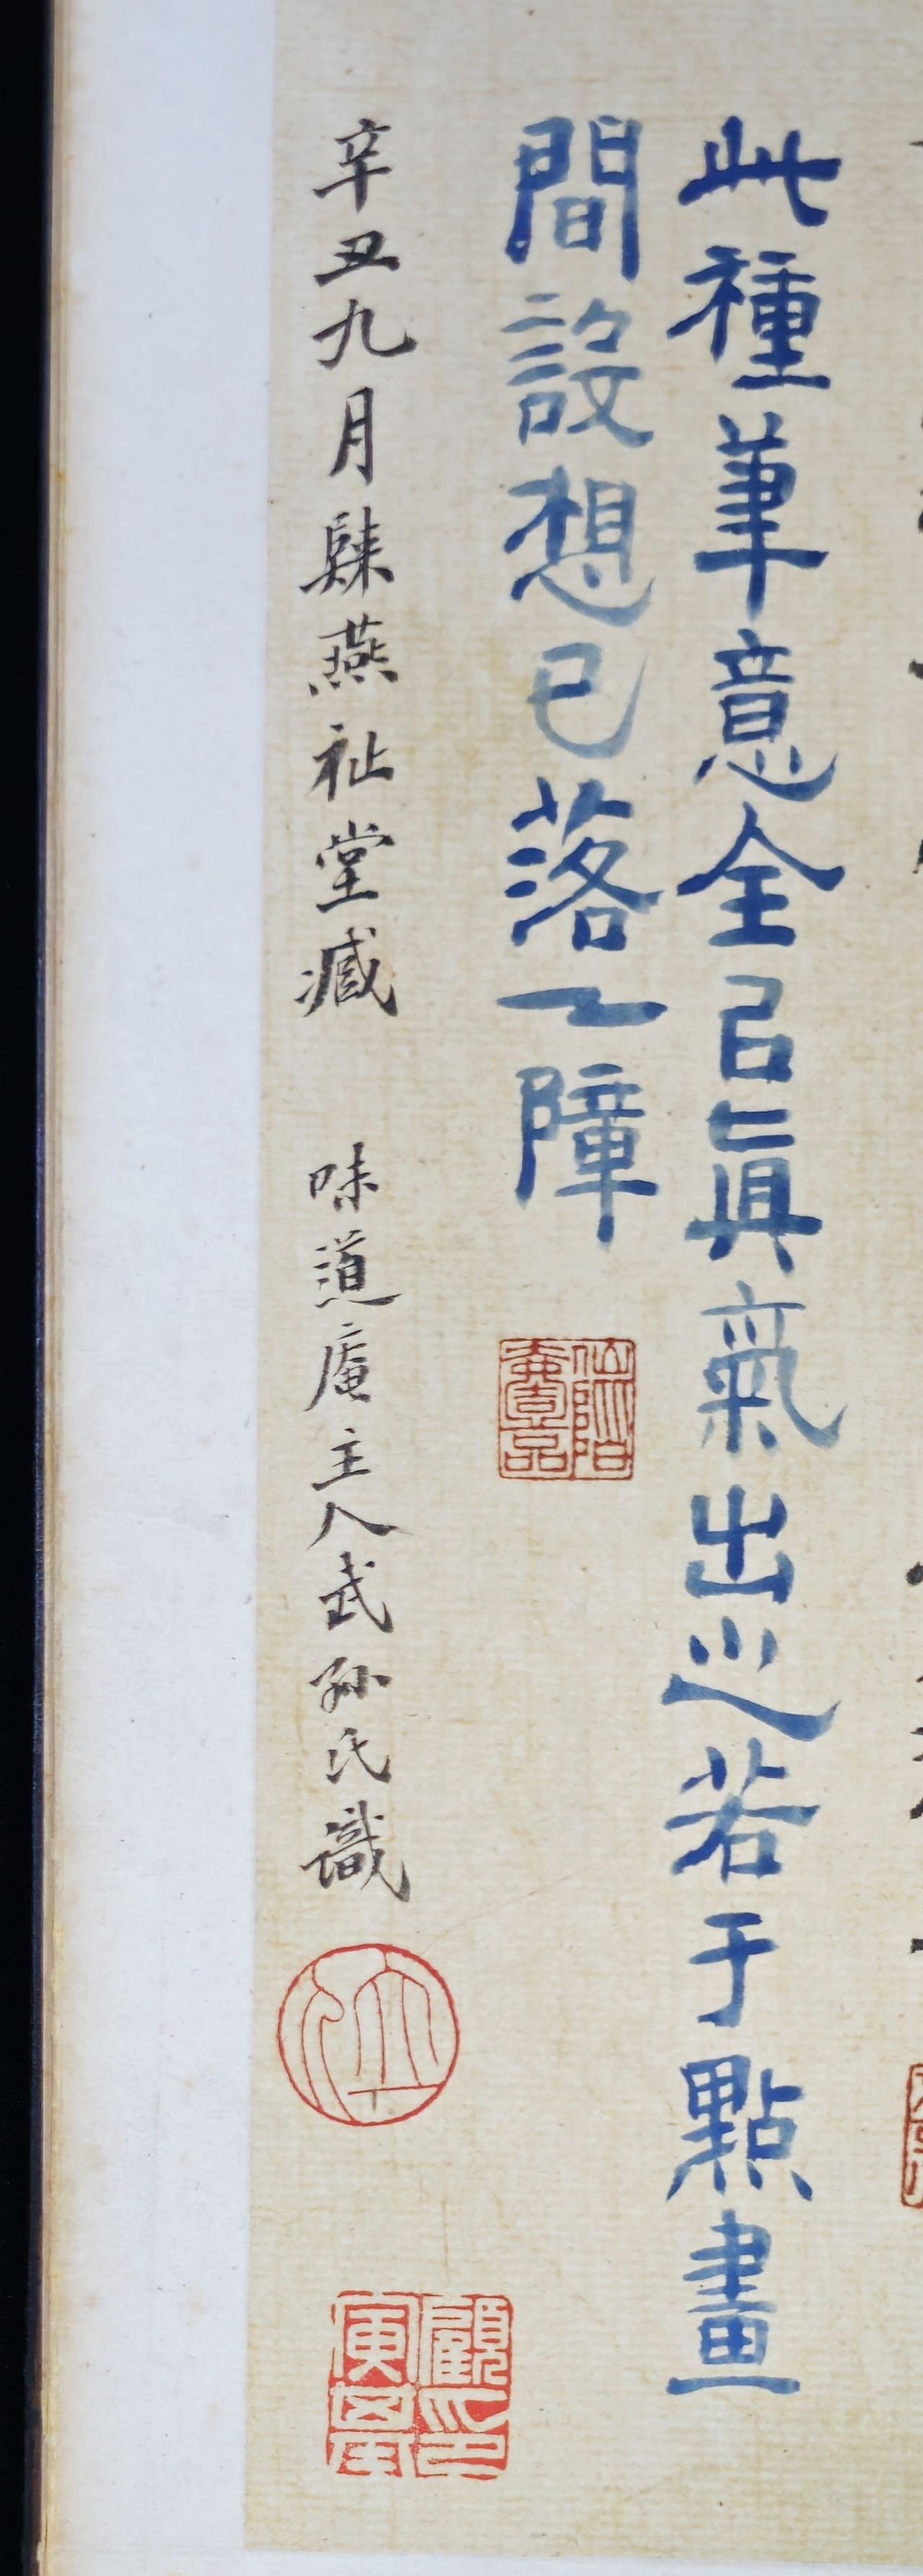 此種筆意全㠯眞氣出之若于點畫
間設想已落一障
辛丑九月隸燕祉堂臧 味道庵主人武孫氏識